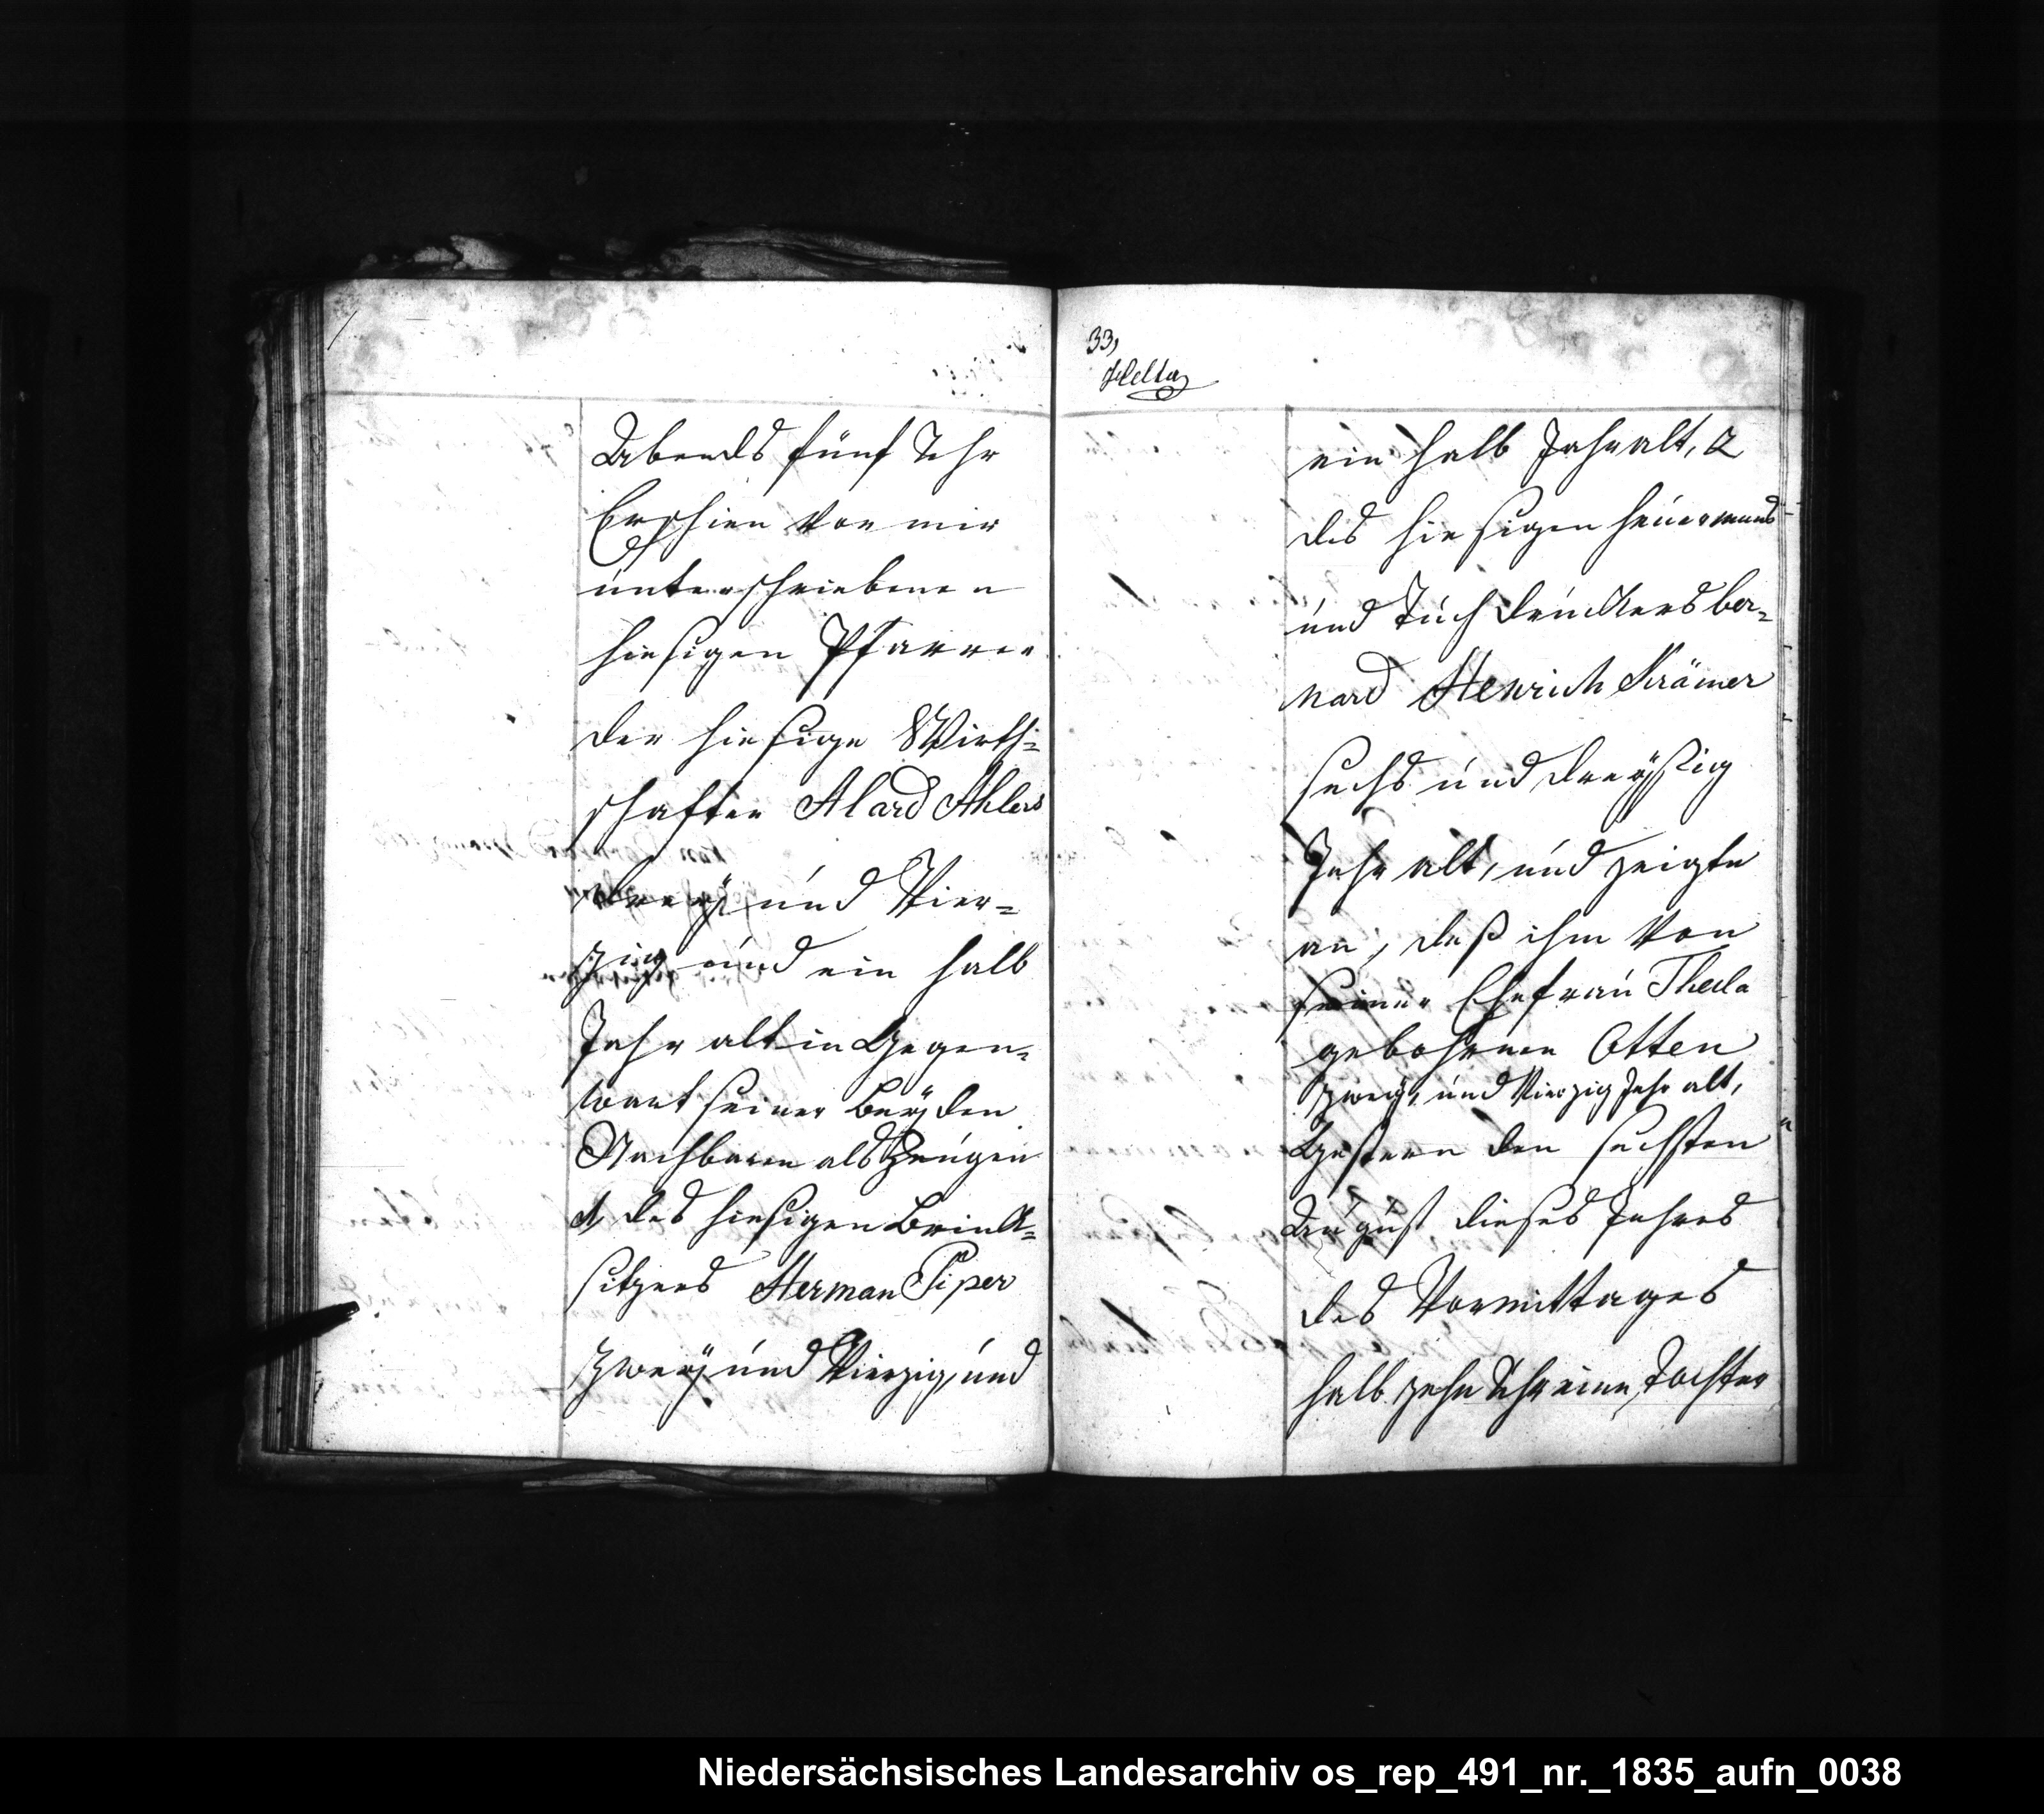 Abends fünf Uhr
Erschien vor mir
unterschriebenen
hiesigen Pfarrer
der hiesige Wirth=
schafter Alard Ahlers
drey und Vier=
zig und ein halb
Jahr alt in Gegen=
wart seiner beyden
Nachbaren als Zeugen
1, des hiesigen Brink=
sitzers Herman Piper
zwey und Vierzig und
33,
ein halb Jahr alt, 2
des hiesigen Heuermans
und Tuch druckers Ber=
nard Henrich Krämer
sechs und dreyßig
Jahr alt, und zeigte
an, daß ihm Von
seiner Ehefrau Thecla
gebohrnen Otten
zwey, und Vierzig Jahr alt,
Gestern den sechsten
August dieses Jahres
des Vormittages
halb zehn Uhr eine Tochter
Niedersächsisches Landesarchiv os_rep_491_nr._1835_aufn_0038